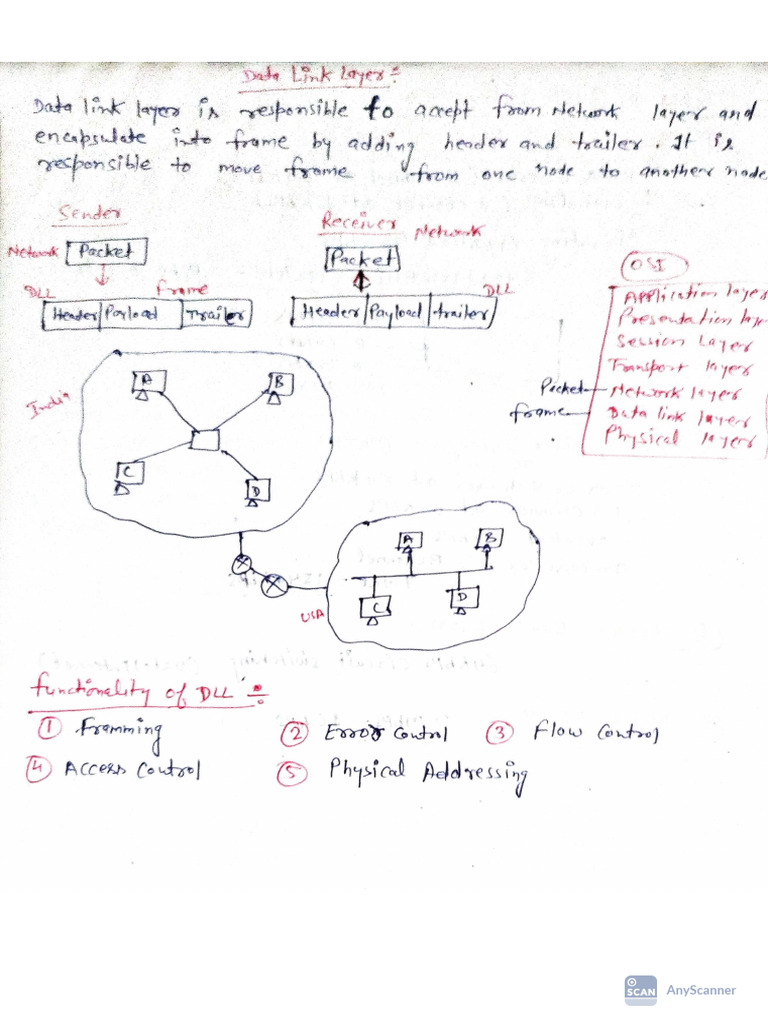 Data Link Layer :-
Data link layer is responsible to accept from Network layer and
encapsulate into frame by adding header and trailer. It is
responsible to move frame from one node to another node
Sender
Receiver
Network
Network
Packet
Packet
OSI
DLL
frame
DLL
Header Payload Trailer
Header Payload trailer
Application layer
Presentation lay
Session Layer
Transport layer
Packet
Network layer
frame
Data link layer
Physical layer
India
A
B
C
D
A
B
C
D
USA
functionality of DLL :-
1 Framming
2 Error Control
3 Flow Control
4 Access Control
5 Physical Addressing
SCAN AnyScanner